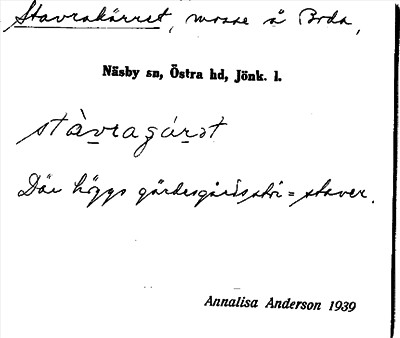 Stavrakärret, mosse å Boda,
Näsby sn, Östra hd, Jönk. l.
stàvragár̲ət
Där höggs gärdesgårds = staver.
Annalisa Anderson 1939